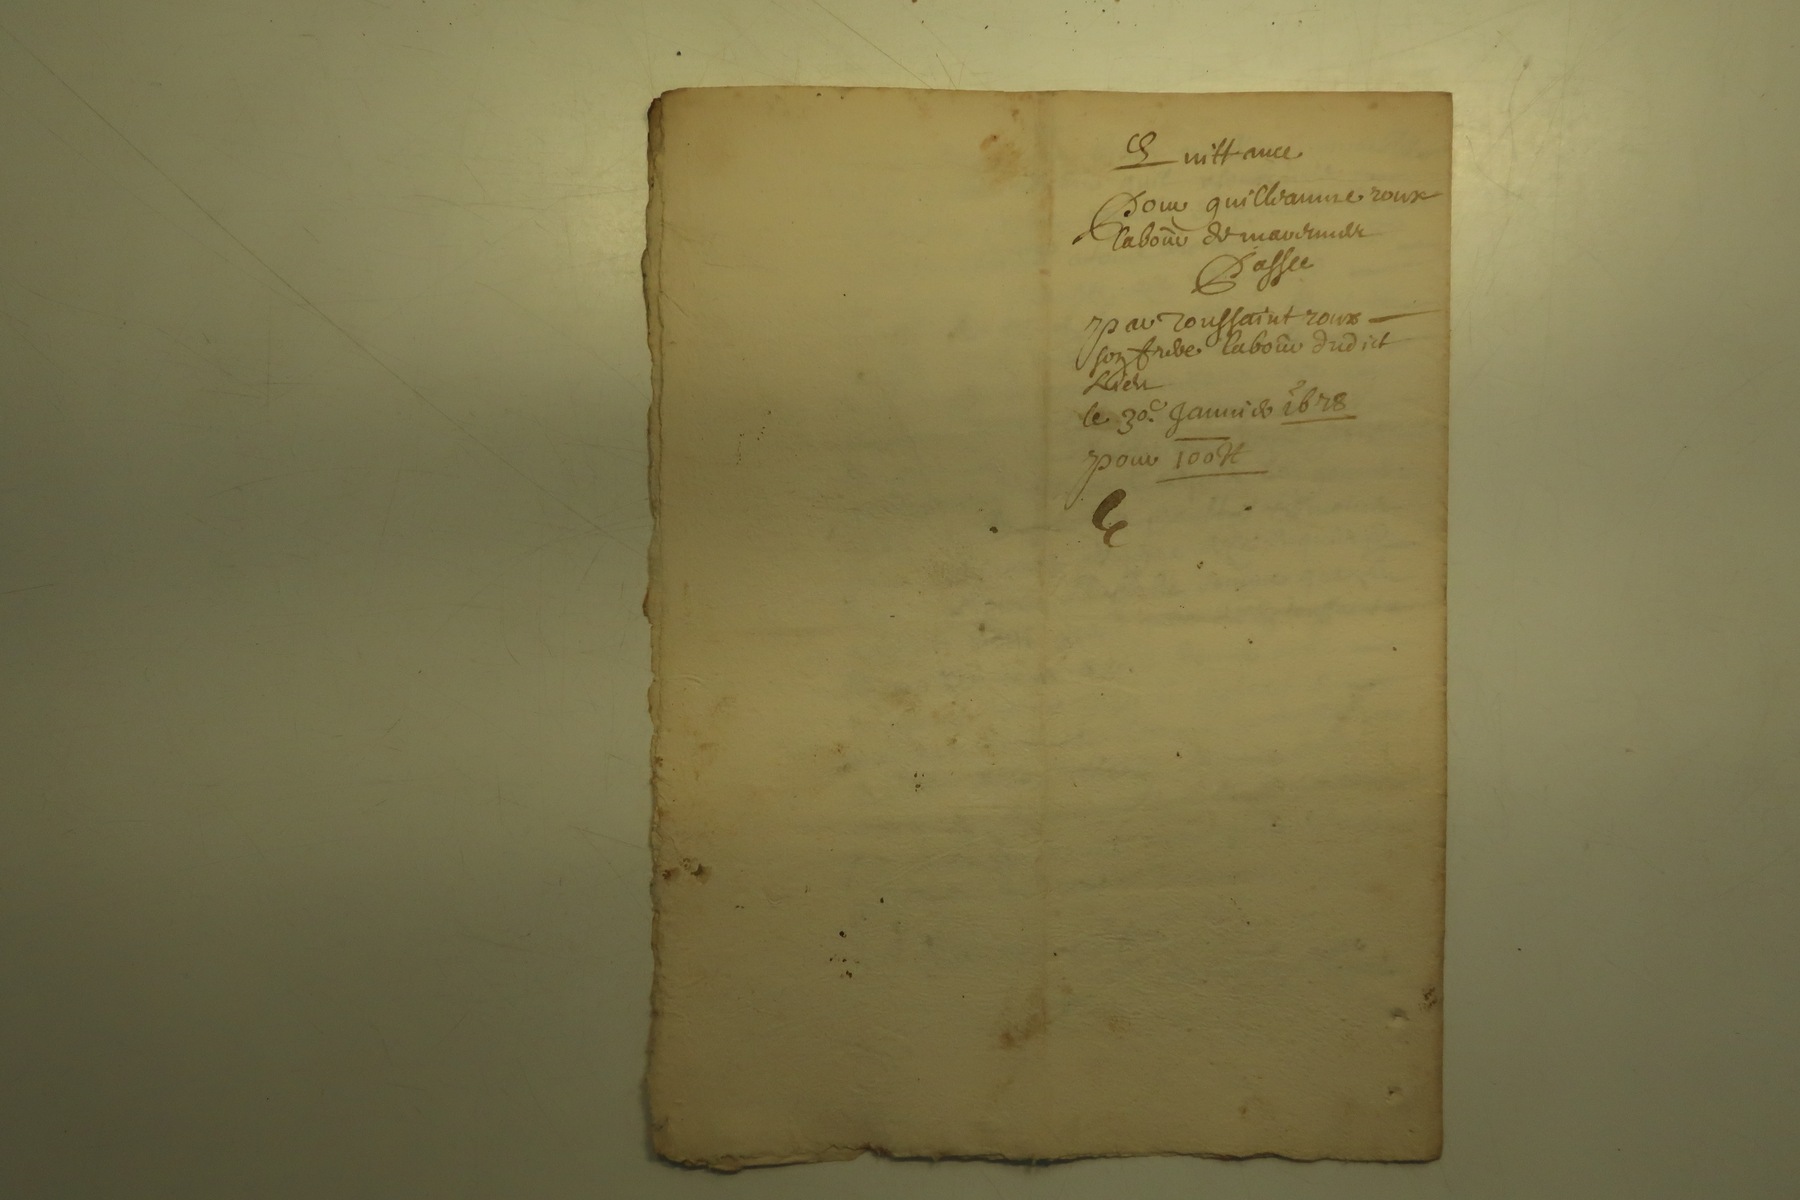 Quittance
Pour guilleaume roux
labour de
Passee
par toussaint roux
son frere labour dudict
Lieu
le 30e Janvier 1678
pour 100 tt